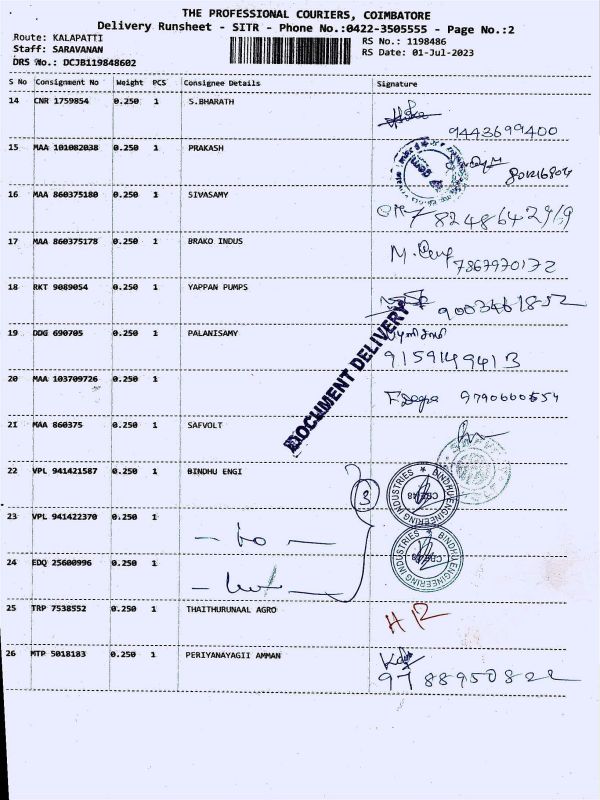 THE PROFESSIONAL COURIERS, COIMBATORE
Delivery Runsheet - SITR - Phone No.:0422-3505555 - Page No.:2
Route: KALAPATTI
Staff: SARAVANAN
DRS No.: DCJB119848602
RS No.: 1198486
RS Date: 01-Jul-2023
S No Consignment No Weight PCS Consignee Details Signature
14 CNR 1759854 0.250 1 S.BHARATH
9443699400
15 MAA 101082038 0.250 1 PRAKASH
16 MAA 860375180 0.250 1 SIVASAMY
17 MAA 860375178 0.250 1 BRAKO INDUS
7867970172
18 RKT 9089054 0.250 1 YAPPAN PUMPS
9003461852
19 DDG 690705 0.250 1 PALANISAMY
9159149413
20 MAA 103709726 0.250 1
9790600554
DOCUMENT DELIVERY
21 MAA 860375 0.250 1 SAFVOLT
22 VPL 941421587 0.250 1 BINDHU ENGI
3
BINDHU ENGINEERING INDUSTRIES
CBE-48
23 VPL 941422370 0.250 1
- to -
BINDHU ENGINEERING INDUSTRIES
CBE-48
24 EDQ 25600996 0.250 1
25 TRP 7538552 0.250 1 THAITHURUNAAL AGRO
26 MTP 5018183 0.250 1 PERIYANAYAGII AMMAN